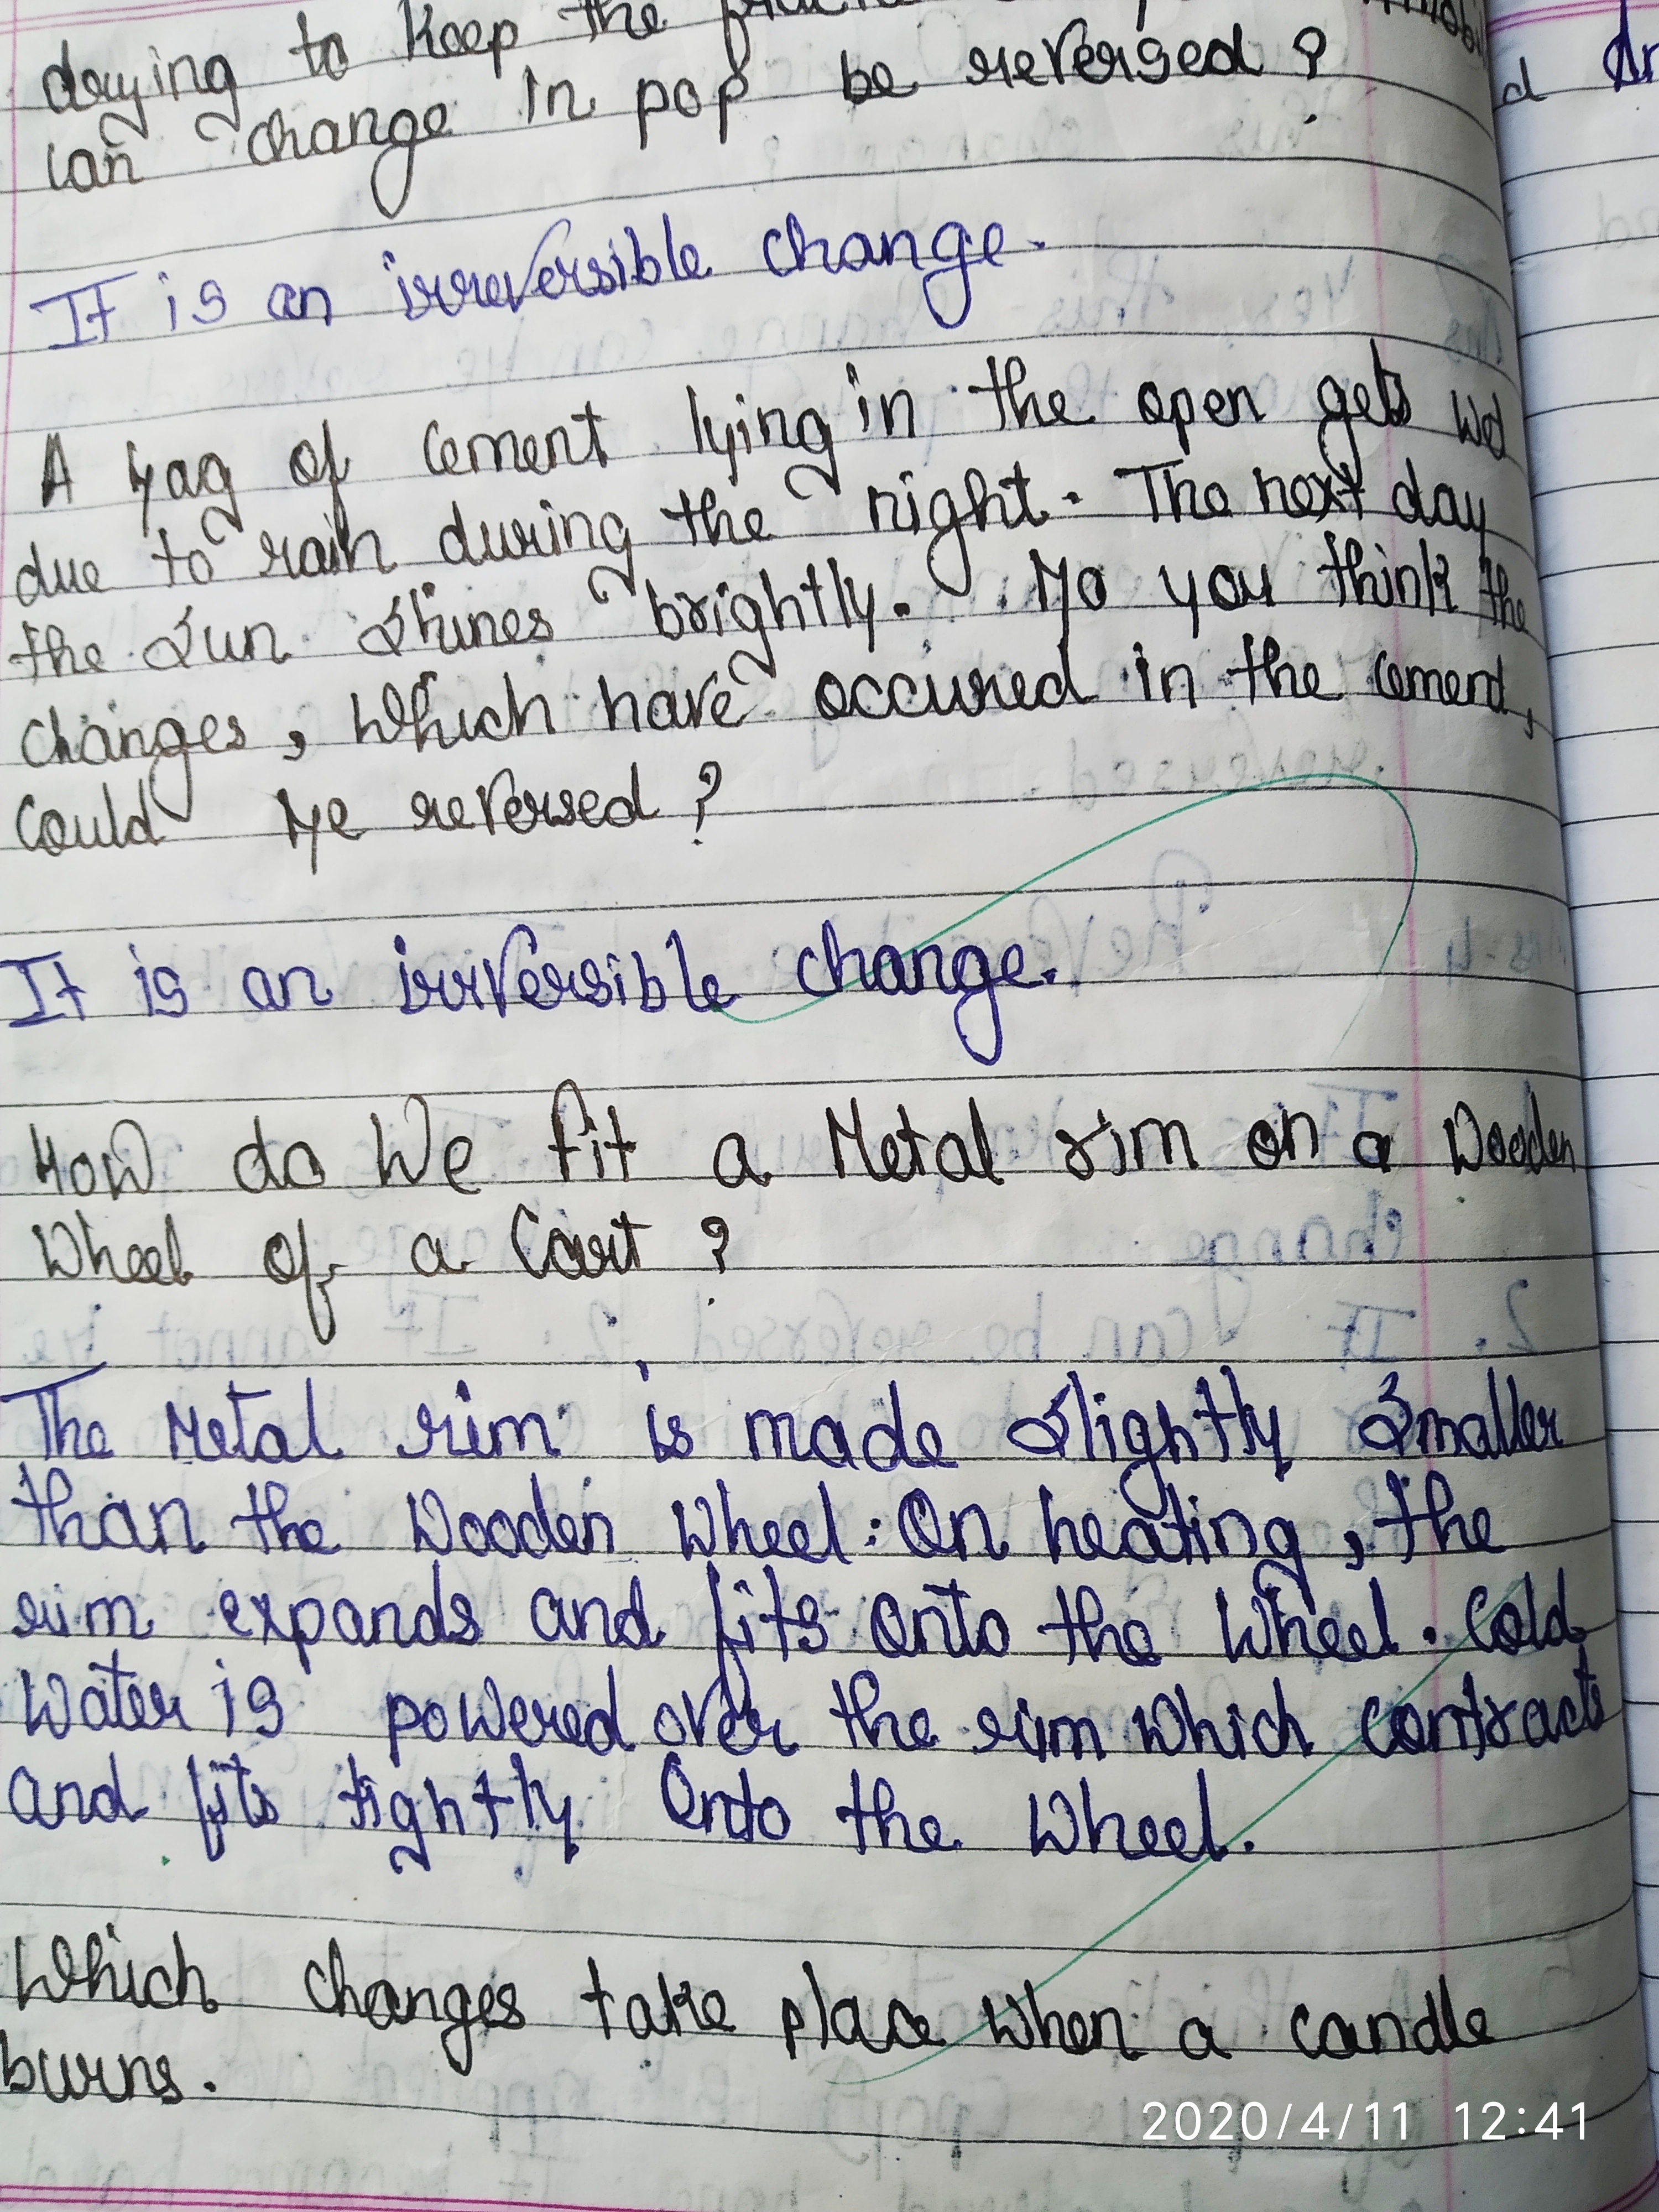 drying to keep the
can change in pop be reversed ?
It is an irreversible change.
A bag of cement lying in the open gets wet
due to rain during the night. The next day
the sun shines brightly. Do you think the
changes, which have occured in the cement,
could be reversed ?
It is an irrversible change.
How do we fit a Metal rim on a wooden
wheel of a Cart ?
The Metal rim is made slightly smaller
than the wooden wheel. On heating, the
rim expands and fits onto the wheel. Cold
water is powered over the rim which contracts
and fits tightly onto the wheel.
Which changes take place when a candle
burns.
2020/4/11 12:41